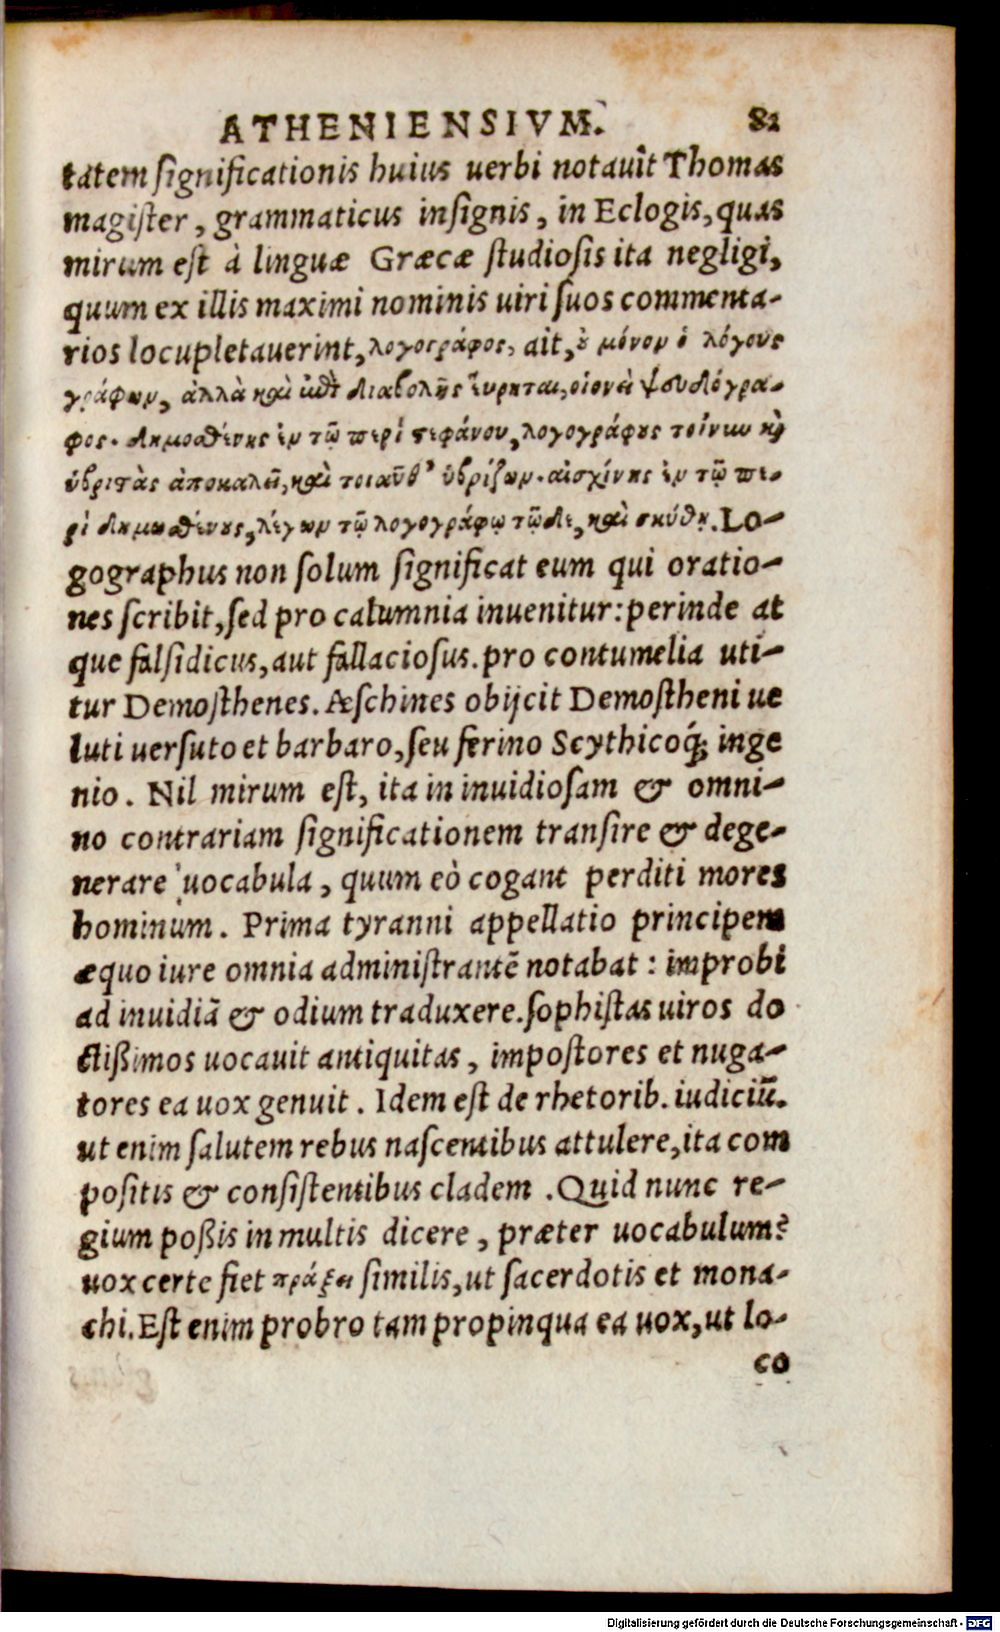 ATHENIENSIVM. 82
tatem significationis huius uerbi notauit Thomas
magister, grammaticus insignis, in Eclogis, quas
mirum est à linguæ Græcæ studiosis ita negligi,
quum ex illis maximi nominis uiri suos commenta-
rios locupletauerint, λογογράφος, ait, ȣ μόνον ὁ λόγους
γράφων, ἀλλὰ καὶ ἐπὶ διαβολῆς εὕρηται, οἱονεὶ ψευδόγρα-
φος. Δημοσθένης ἐν τῷ περὶ στεφάνου, λογογράφȣς τοίνυν καὶ
ὑβριστὰς ἀποκαλεῖ, καὶ τοιαῦθ' ὑβρίζων. αἰσχίνης ἐν τῷ πε-
ρὶ Δημοσθένȣς, λέγων τῷ λογογράφῳ τῷδε, καὶ σκύθῃ. Lo-
gographus non solum significat eum qui oratio-
nes scribit, sed pro calumnia inuenitur: perinde at
que falsidicus, aut fallaciosus. pro contumelia uti-
tur Demosthenes. Æschines obijcit Demostheni ue
luti uersuto et barbaro, seu ferino Scythicoq́; inge
nio. Nil mirum est, ita in inuidiosam & omni-
no contrariam significationem transire & dege-
nerare uocabula, quum eò cogant perditi mores
hominum. Prima tyranni appellatio principem
æquo iure omnia administrantẽ notabat: improbi
ad inuidiã & odium traduxere. sophistas uiros do
ctißimos uocauit antiquitas, impostores et nuga-
tores ea uox genuit. Idem est de rhetorib. iudiciũ.
ut enim salutem rebus nascentibus attulere, ita com
positis & consistentibus cladem. Quid nunc re-
gium poßis in multis dicere, præter uocabulum?
uox certe fiet πράξει similis, ut sacerdotis et mona-
chi. Est enim probro tam propinqua ea uox, ut lo-
co
Digitalisierung gefördert durch die Deutsche Forschungsgemeinschaft - DFG